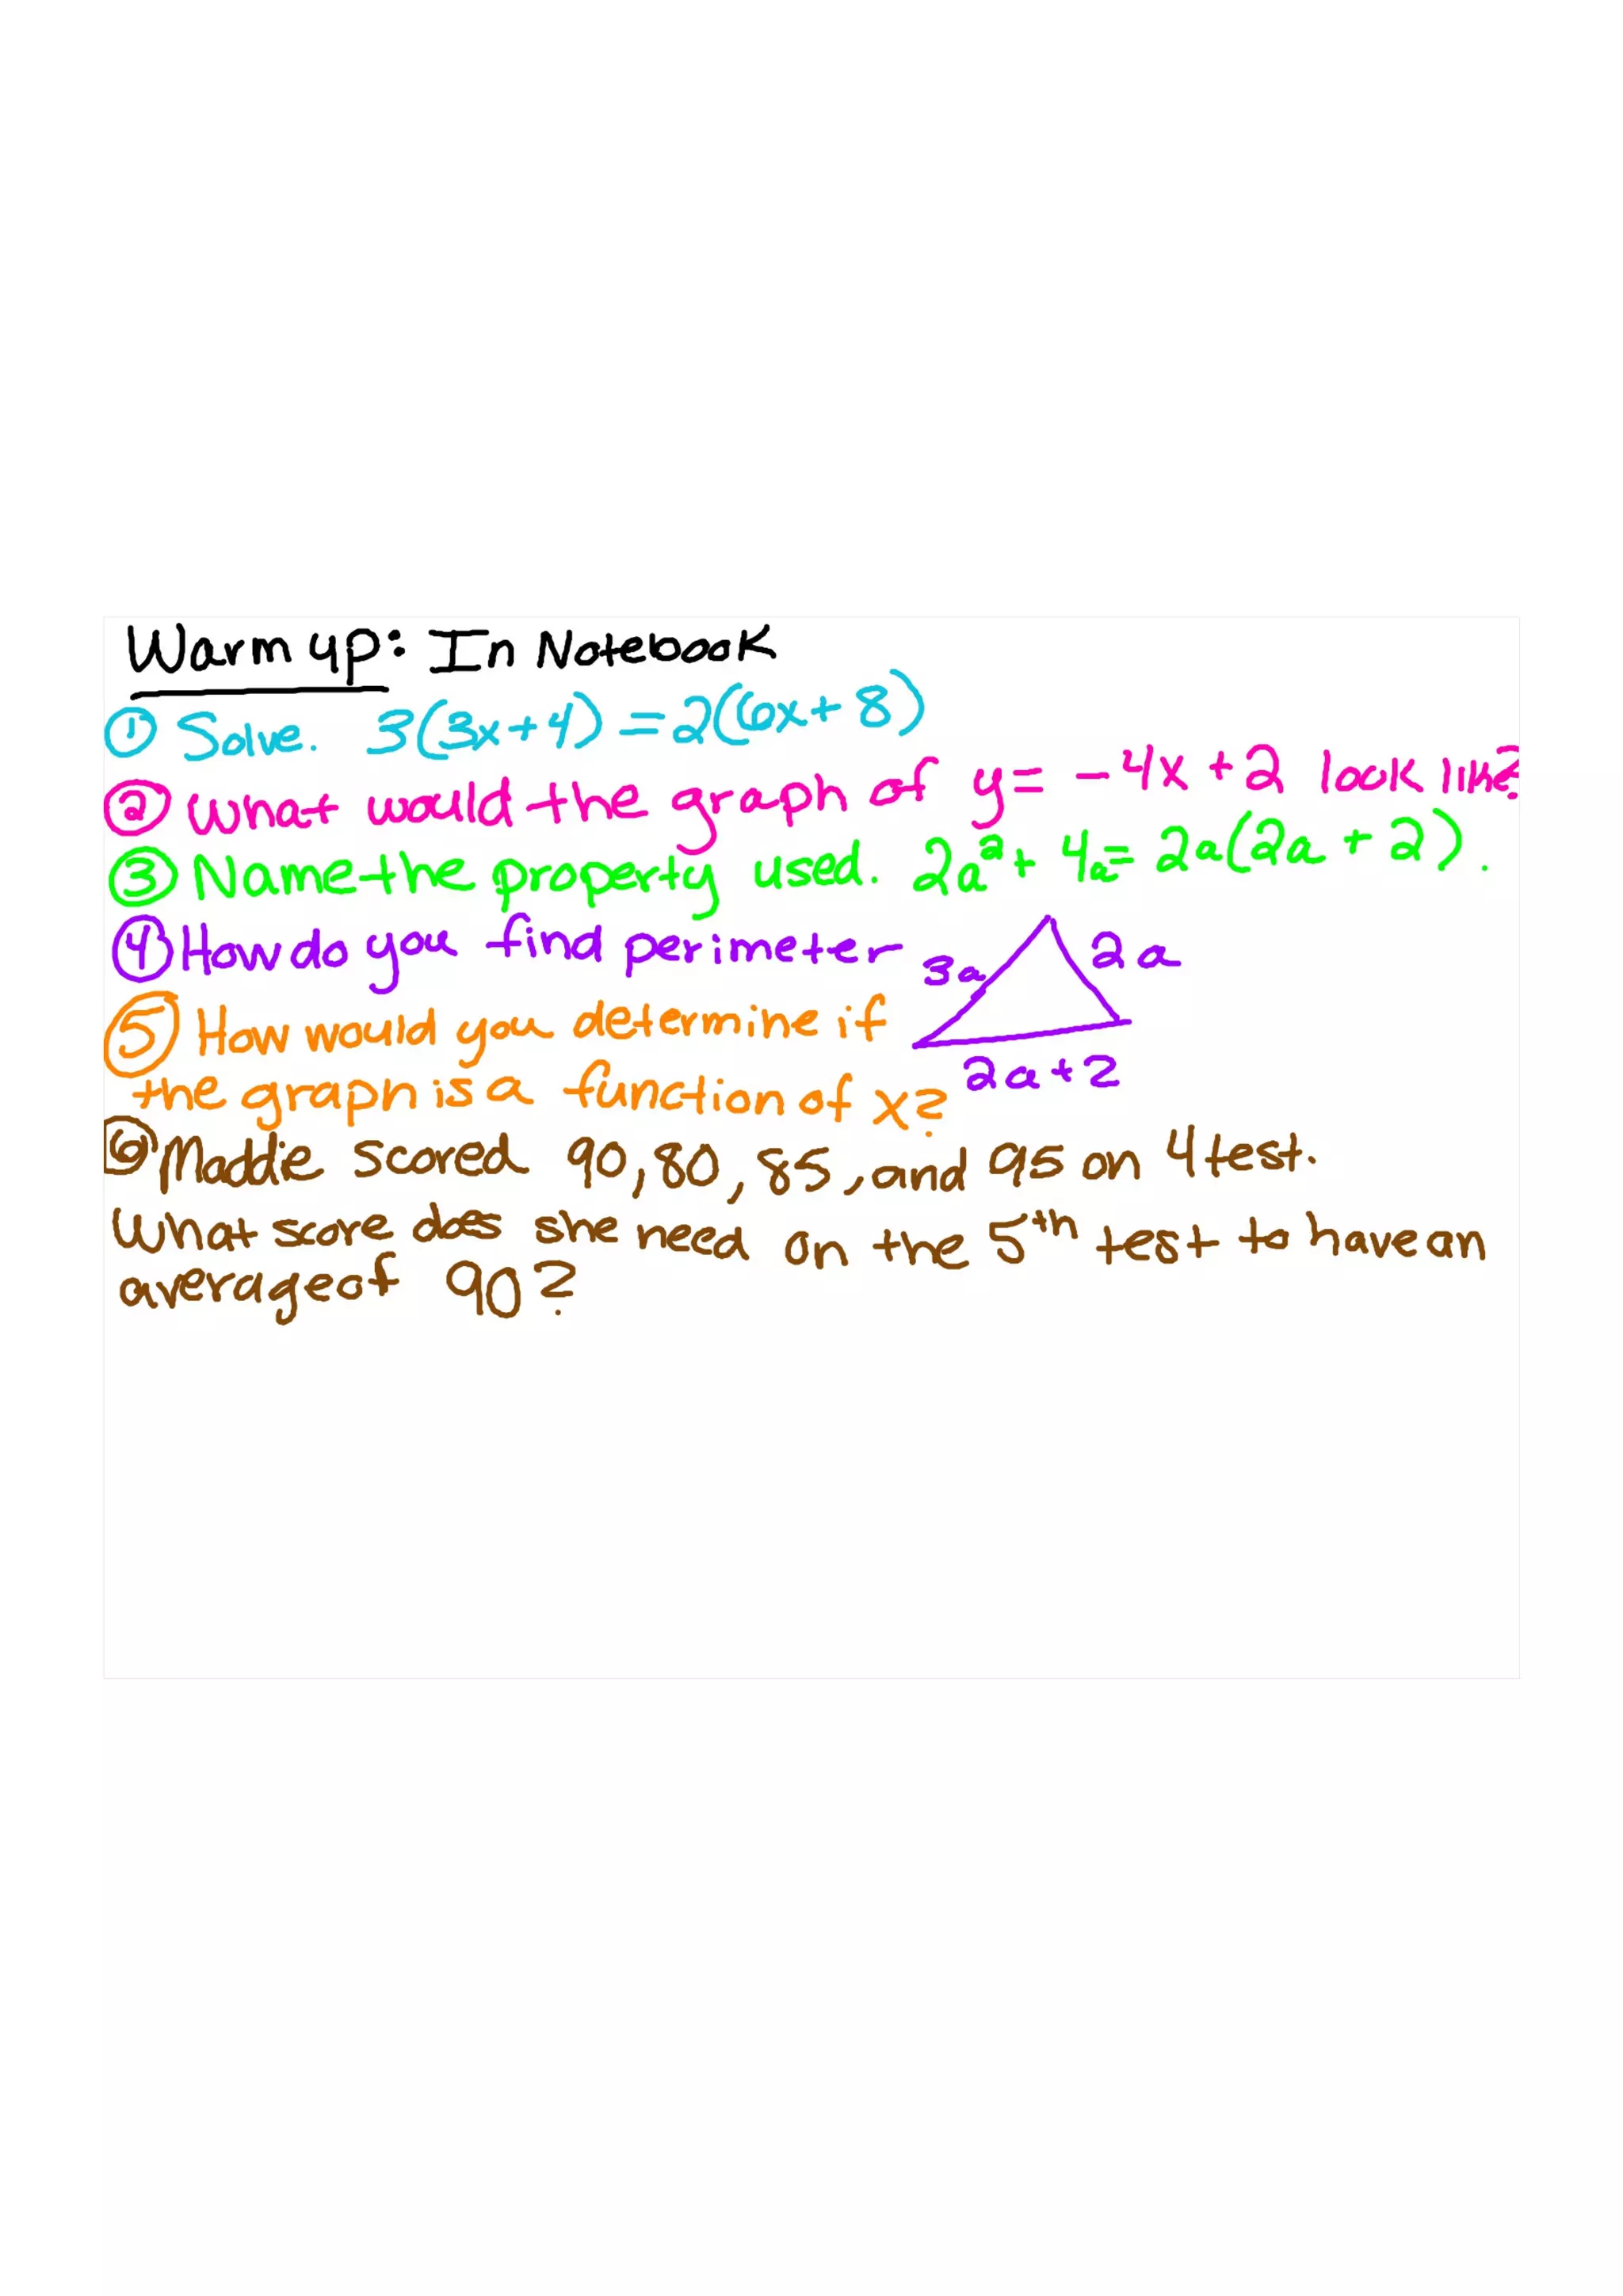 Warm up: In Notebook
① Solve. 3(3x+4) = 2(6x+8)
② What would the graph of y = -4x + 2 look like?
③ Name the property used. 2a² + 4a = 2a(2a + 2).
④ How do you find perimeter 3a 2a
2a + 2
⑤ How would you determine if
the graph is a function of x?
⑥ Maddie scored 90, 80, 85, and 95 on 4 test.
What score does she need on the 5th test to have an
average of 90?